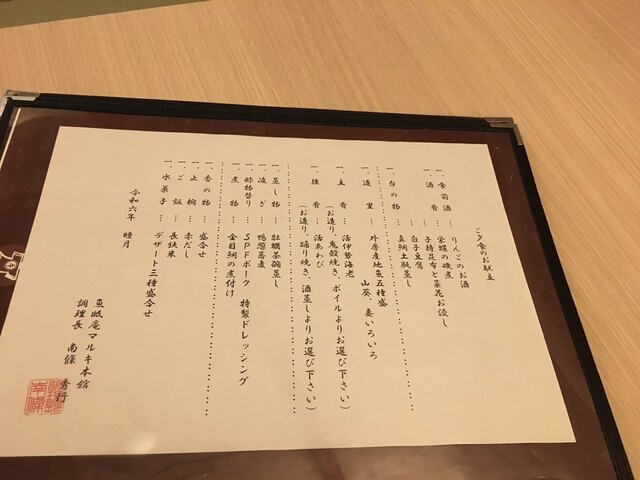 ご夕食のお献立
一、食前酒 … りんごのお酒
一、酒肴 … 栄螺の磯煮
子持昆布と菜花お浸し
白子豆腐
一、台の物 … 真鯛土瓶蒸し
一、造里 … 外房産地魚五種盛
山葵、妻いろいろ
一、主肴 … 活伊勢海老
(お造り、鬼殻焼き、ボイルよりお選び下さい)
一、強肴 … 活あわび
(お造り、踊り焼き、酒蒸しよりお選び下さい)
一、蒸し物 … 牡蠣茶碗蒸し
一、凌ぎ … 鴨葱蕎麦
一、酢物替り … SPFポーク 特製ドレッシング
一、煮物 … 金目鯛の煮付け
一、香の物 … 盛合せ
一、止椀 … 赤だし
一、ご飯 … 長狭米
一、水菓子 … デザート三種盛合せ
令和六年 睦月
魚眠庵マルキ本館
調理長 南條 秀行